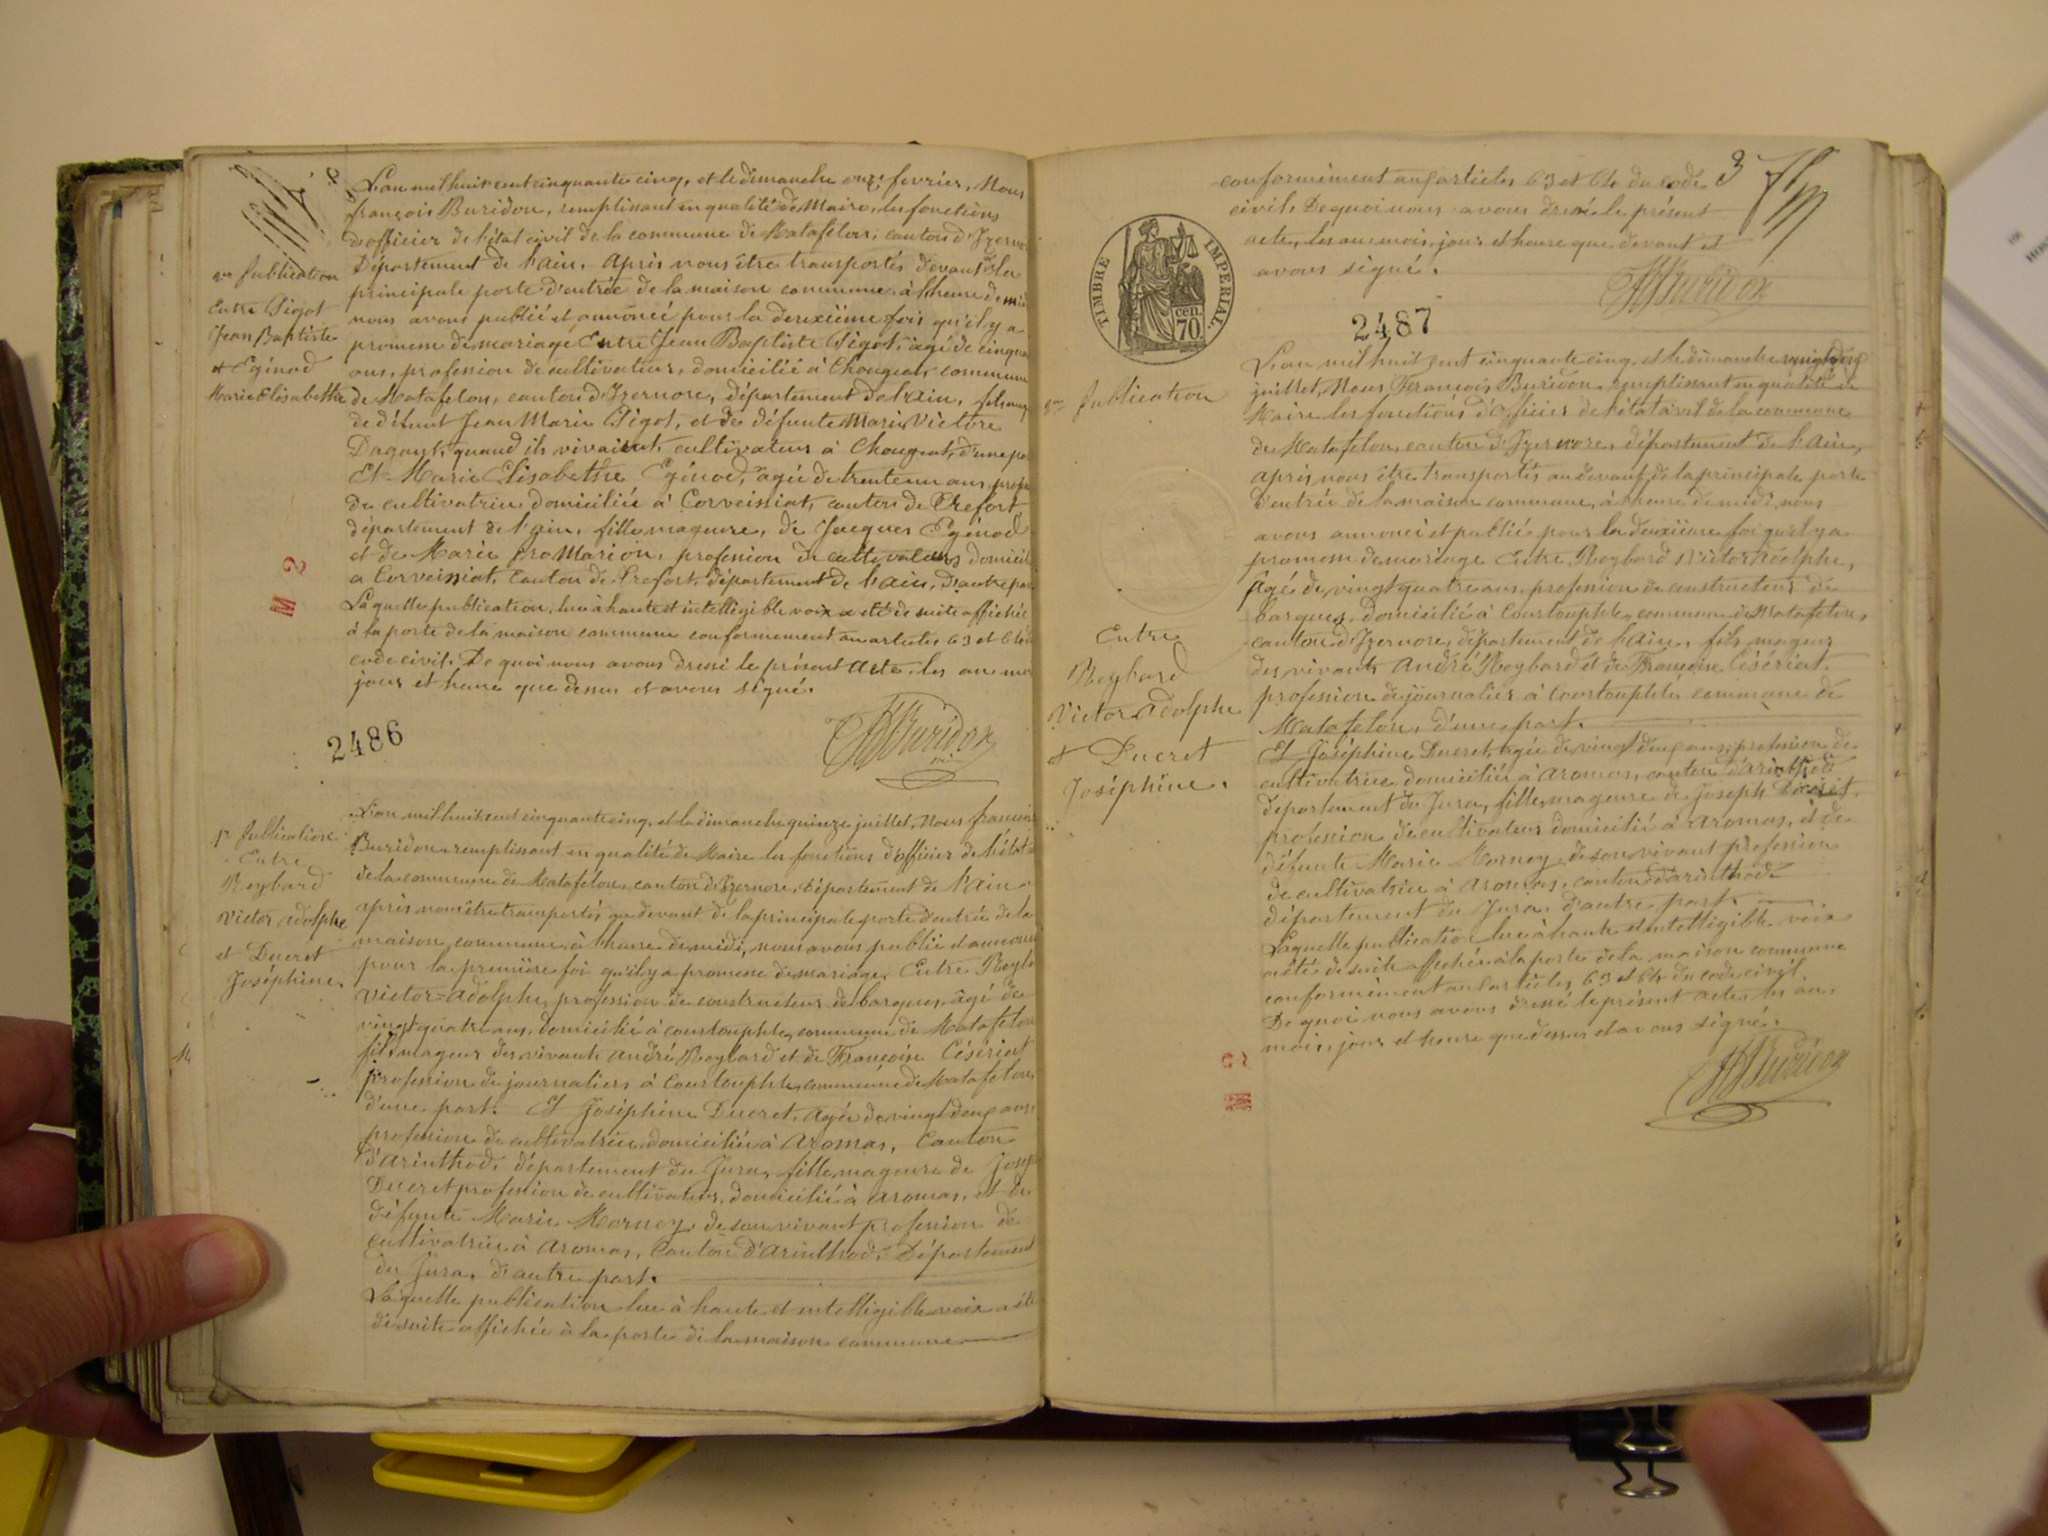 L'an mil huit cent cinquante cinq, et le dimanche onze fevrier, Nous
françois Buridon, remplissant en qualité de Maire, les fonctions
d'officier de l'état civil de la commune de Matafelon, canton d'Izernore
Département de l'ain, après nous être transportés devant de la
principale porte d'entrée de la maison commune à l'heure de midi
nous avons publié et annoncé pour la deuxième fois qu'il y a
promesse de mariage Entre Jean Baptiste Pigot, âgé de cinquante
ans, profession de cultivateur, domicilié à Chougeat, commune
de Matafelon, canton d'Izernore, département de l'ain, fils
de défunt Jean Marie Pigot, et de défunte Marie Victore
quand ils vivaient, cultivateurs à Chougeat, d'une part
Et Marie Elisabethe Eginod, agée de trente un ans profession
de cultivatrice domiciliée à Corveissiat, canton de Trefort
département de l'ain, fille mageure, de Jacques Eginod
et de Marie Marion, profession de cultivateurs
a Corveissiat, canton de Trefort, département de l'ain, D'autre part
Laquelle publication, lue à haute et intelligible voix a été de suite affichée
à la porte de la maison commune conformement au articles 63 et 64 du
code civil. De quoi nous avons dressé le présent Acte. les an mois
jour et heure que dessus et avons signé.
Buridon
2me Publication
Entre Pigot
Jean Baptiste
et Eginod
Marie Elisabethe
M 2
2486
L'an mil huit cent cinquante cinq, et le dimanche quinze juillet, Nous françois
Buridon remplissant en qualité de Maire les fonctions d'officier de l'état
de la commune de Matafelon canton d'Izernore, Département de l'ain
après nous être transportés au devant de la principale porte d'entrée de la
maison commune à l'heure de midi, nous avons publié et annoncé
pour la première foi qu'il y a promesse de mariage, Entre Reybard
Victor=Adolphe, profession de constructeur de barques, âgé de
vingt quatre ans, domicilié à courtouphle, commune de Matafelon
fils mageur des vivants André Reybard et de Françoise Césériat
profession de journaliers à Courtouphle, commune de Matafelon
d'une part. Et Joséphine Ducret, agée de vingt deux ans,
profession de cultivatrice domiciliée à Aromas, Canton
d'Arinthod, département du Jura, fille mageure de Joseph
Ducret profession de cultivateur, domicilié à Aromas, et de
défunte Marie Mornay de son vivant profession de
cultivatrice à Aromas, Canton d'Arinthod, Département
du Jura, d'autre part.
Laquelle publication lue à haute et intelligible voix a été
de suite affichée à la porte de la maison commune
1re Publication
Entre
Reybard
Victor Adolphe
et Ducret
Joséphine.
3
conformément aux articles 63 et 64 du code
civil. De quoi nous avons dressé le présent
acte, les an mois, jour et heure que devant et
avons signé.
Buridon
TIMBRE IMPERIAL.
cen.
70.
2487
L'an mil huit cent cinquante cinq, et le dimanche vingt deux
juillet, Nous François Buridon remplissant en qualité de
Maire les fonctions d'officier de l'état civil de la commune
de Matafelon, canton d'Izernore, département de l'Ain,
après nous être transportés au devant de la principale porte
d'entrée de la maison commune, à l'heure de midi nous
avons annoncé et publié pour la deuxième foi qu'il y a
promesse de mariage Entre Reybard Victor Adolphe,
Agé de vingt quatre ans, profession de constructeur de
barques, domicilié à Courtouphle commune de Matafelon,
canton d'Izernore, département de l'ain, fils mageur
des vivants André Reybard et de Françoise Césériat
profession de journalier à Courtouphle commune de
Matafelon, d'une part.
Et Joséphine Ducret, agée de vingt deux ans, profession de
cultivatrice domiciliée à Aromas, canton d'Arinthod
département du Jura, fille mageure de Joseph Ducret,
profession de cultivateur domicilié à Aromas, et de
défunte Marie Mornay de son vivant profession
de cultivatrice à Aromas, canton d'arinthod
département du Jura, d'autre part.
Laquelle publication lue à haute et intelligible voix
a été de suite affichée à la porte de la maison commune
conformément aux articles 63 et 64 du code civil.
De quoi nous avons dressé le présent acte, les an
mois, jour et heure que dessus et avons signé.
Buridon
2me Publication
Entre
Reybard
Victor Adolphe
et Ducret
Joséphine.
M 2